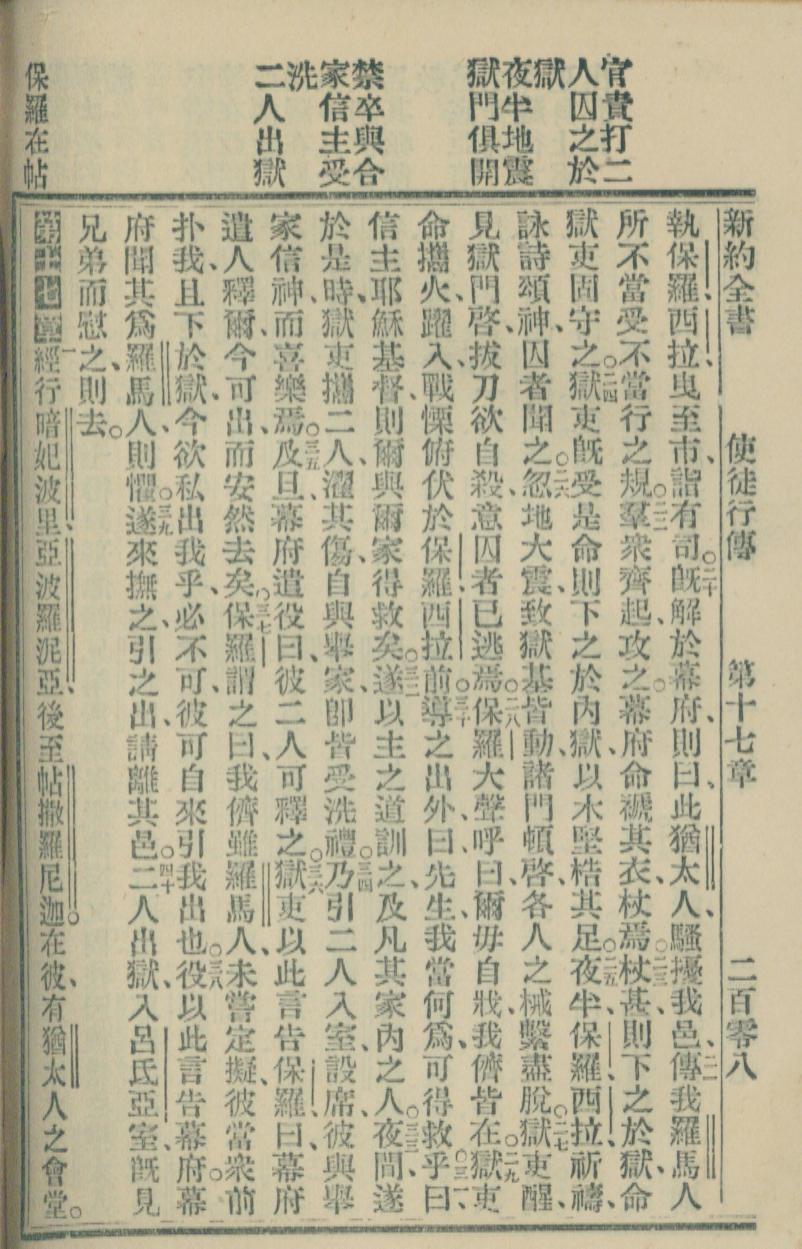 官責打二
人囚之於
獄
夜半地震
獄門俱開
禁卒與合
家信主受
洗
二人出獄
保羅在帖
新約全書 使徒行傳 第十七章 二百零八
執保羅西拉曳至市、詣有司。二十既解於幕府、則曰、此猶太人、騷擾我邑、二一傳我羅馬人
所不當受不當行之規。二二羣衆齊起、攻之。幕府命褫其衣、杖焉。二三杖甚、則下之於獄、命
獄吏固守之。二四獄吏既受是命、則下之於內獄、以木堅梏其足。二五夜半、保羅、西拉祈禱、
詠詩頌神、囚者聞之。二六忽地大震、致獄基皆動、諸門頓啓、各人之械繫盡脫。二七獄吏醒、
見獄門啓、拔刀欲自殺、意囚者已逃焉。二八保羅大聲呼曰、爾毋自戕、我儕皆在。二九獄吏
命攜火、躍入、戰慄俯伏於保羅、西拉前。三十導之出外、曰、先生、我當何爲、可得救乎。三一曰、
信主耶穌基督、則爾與爾家得救矣。三二遂以主之道訓之、及凡其家內之人。三三夜間遂
於是時、獄吏攜二人、濯其傷、自與舉家、卽皆受洗禮。三四乃引二人入室、設席、彼與舉
家信神而喜樂焉。三五及旦、幕府遣役曰、彼二人可釋之。三六獄吏以此言告保羅曰、幕府
遣人釋爾、今可出而安然去矣。三七保羅謂之曰、我儕雖羅馬人、未嘗定擬、彼當衆前
扑我、且下於獄、今欲私出我乎、必不可、彼可自來引我出也。三八役以此言告幕府。幕
府聞其爲羅馬人、則懼。三九遂來撫之、引之出、請離其邑。四十二人出獄、入呂氐亞室、既見
兄弟而慰之、則去。
第十七章一經行暗妃波里、亞波羅泥亞、後至帖撒羅尼迦。在彼、有猶太人之會堂。